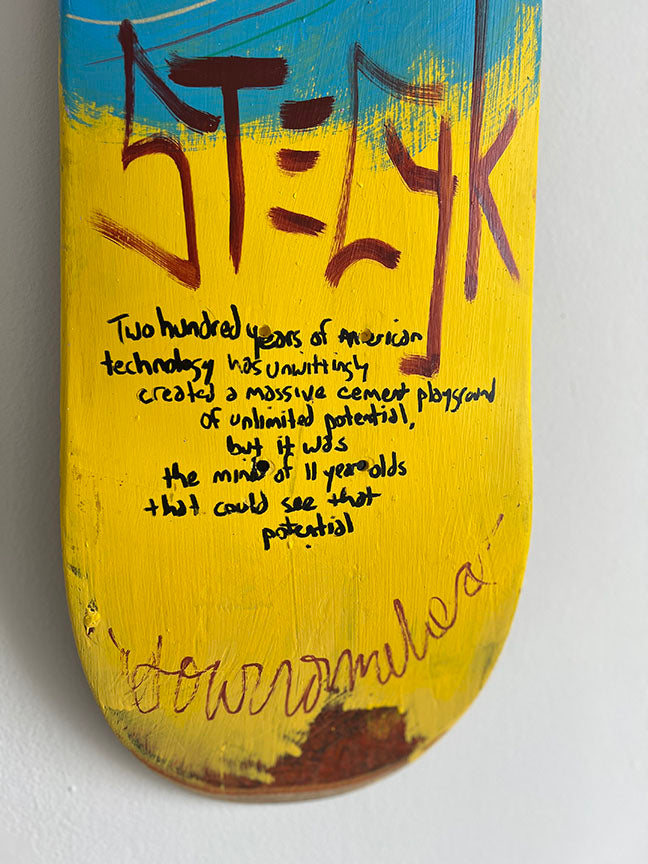 STECYK
Two hundred years of American
technology has unwittingly
created a massive cement playground
of unlimited potential,
but it was
the minds of 11 year olds
that could see that
potential